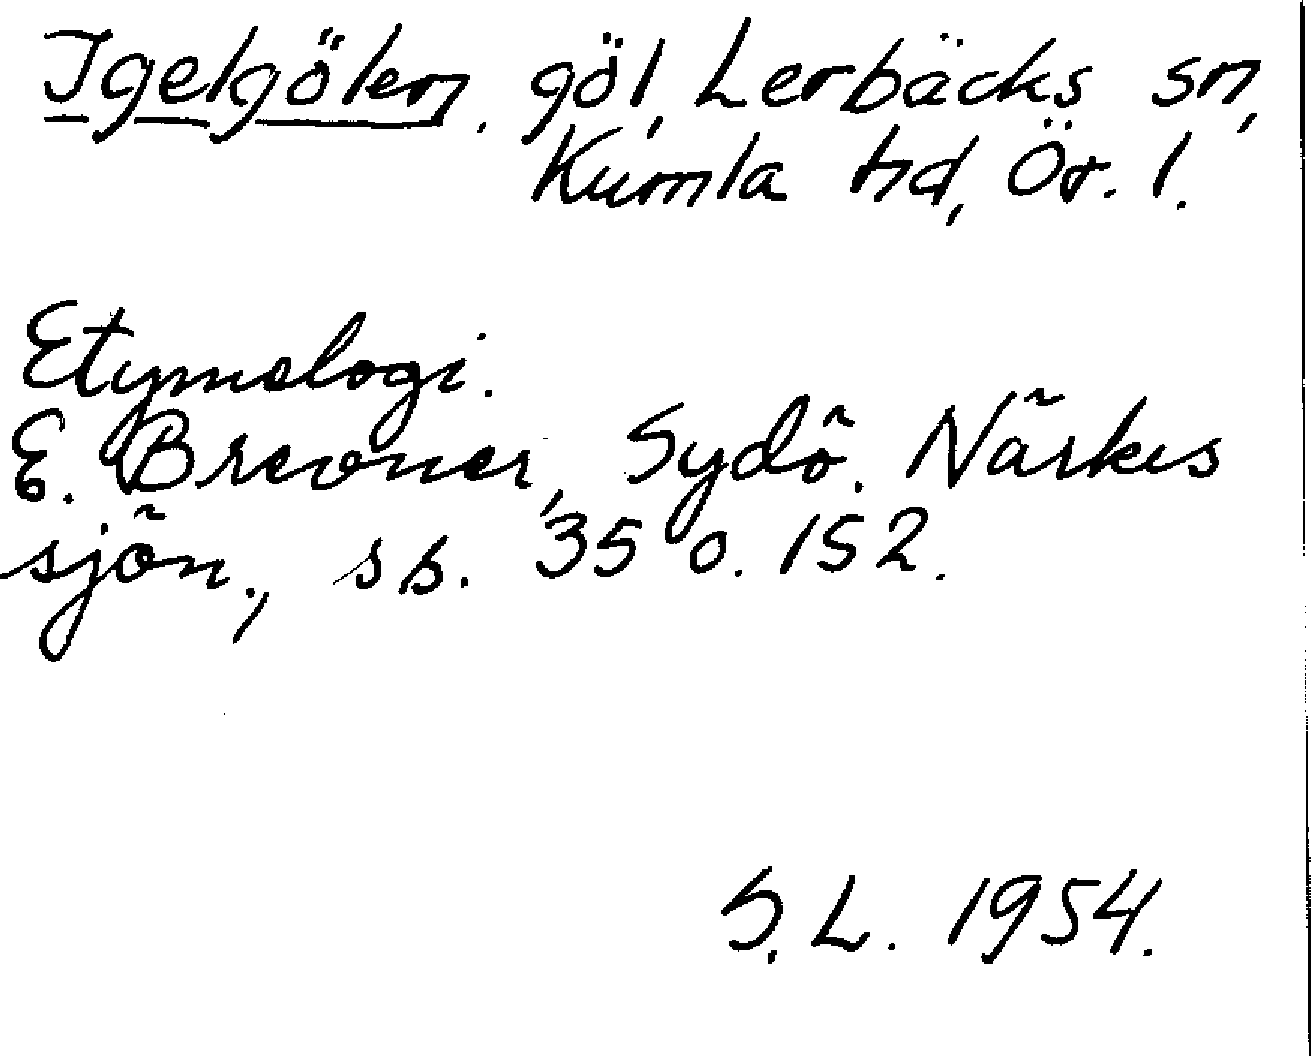 Igelgölen, göl, Lerbäcks sn,
Kumla hd, Ör. l.
Etymologi.
E. Brevner, Sydö. Närkes
sjön., ss. 35 o. 152.
S. L. 1954.